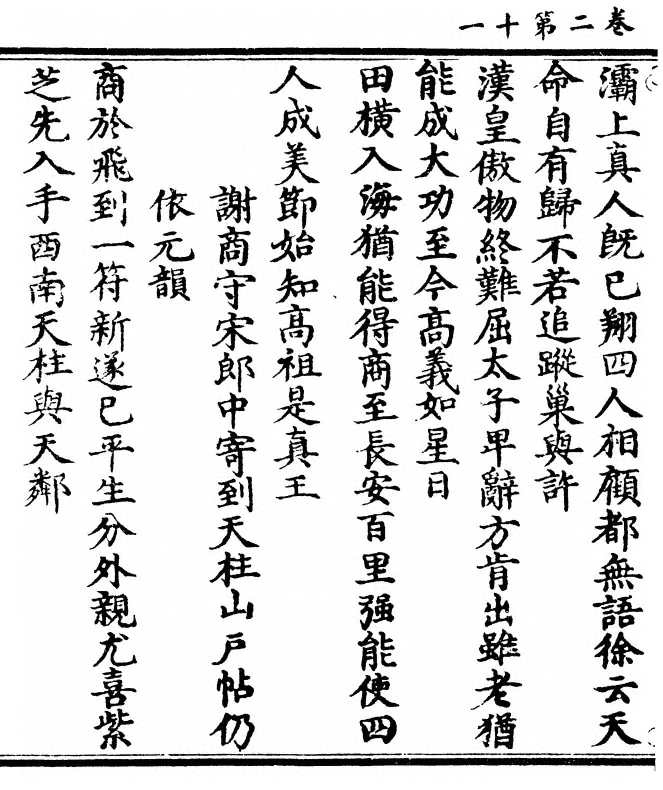 卷二第十一
灞上真人旣已翔四人相顧都無語徐云天
命自有歸不若追蹤巢與許
漢皇傲物終難屈太子卑辭方肯出雖老猶
能成大功至今高義如星日
田橫入海猶能得商至長安百里强能使四
人成美節始知高祖是真王
謝商守宋郎中寄到天柱山戸帖仍
依元韻
商於飛到一符新遂已平生分外親尤喜紫
芝先入手酉南天柱與天鄰